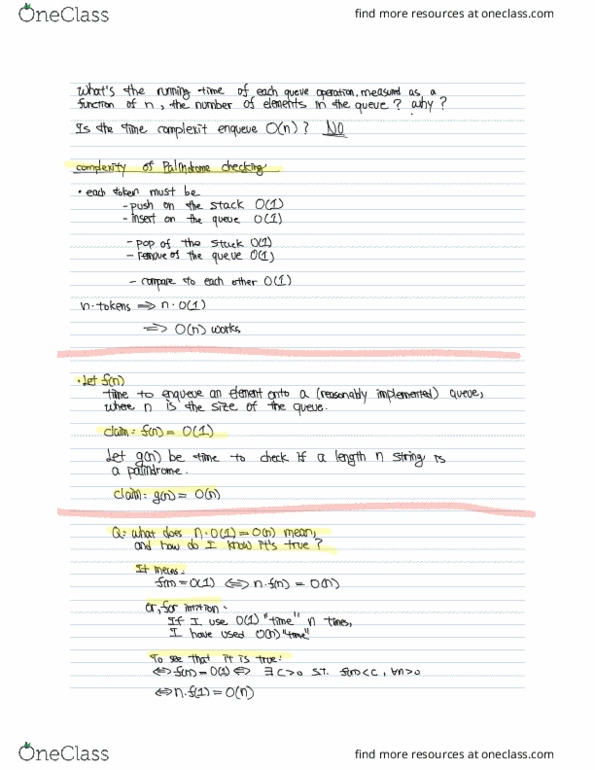 OneClass
find more resources at oneclass.com
What's the running time of each queue operation, measured as a
function of n, the number of elements in the queue? why?
Is the time complexit enqueue O(n)? NO
complexity of Palindrome checking
• each token must be
- push on the stack O(1)
- insert on the queue O(1)
- pop of the stack O(1)
- remove of the queue O(1)
- compare to each other O(1)
n·tokens ⟹ n·O(1)
⟹ O(n) works
• Let f(n)
time to enqueue an element onto a (reasonably implemented) queue,
where n is the size of the queue.
claim: f(n) = O(1)
Let g(n) be time to check if a length n string is
a palindrome.
claim: g(n) = O(n)
Q: what does n·O(1) = O(n) mean,
and how do I know it's true?
It means:
f(n) = O(1) ⟺ n·f(n) = O(n)
or, for intition:
If I use O(1) "time" n times,
I have used O(n) "time"
To see that it is true:
⟺ f(n) = O(1) ⟺ ∃ c>0 s.t. f(n)<c, ∀n>0
⟺ n·f(1) = O(n)
OneClass
find more resources at oneclass.com